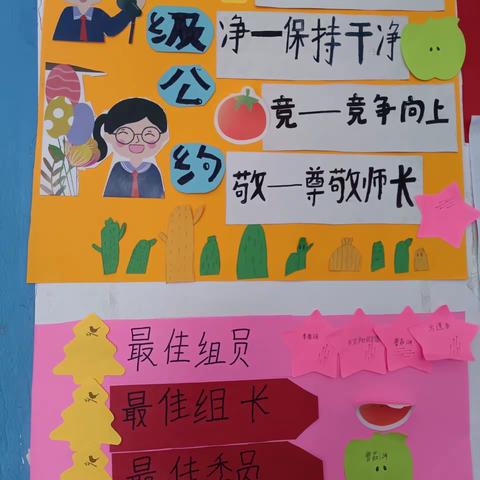 级公约
净一保持干净
竞一竞争向上
敬一尊敬师长
最佳组员
最佳组长
最佳委员